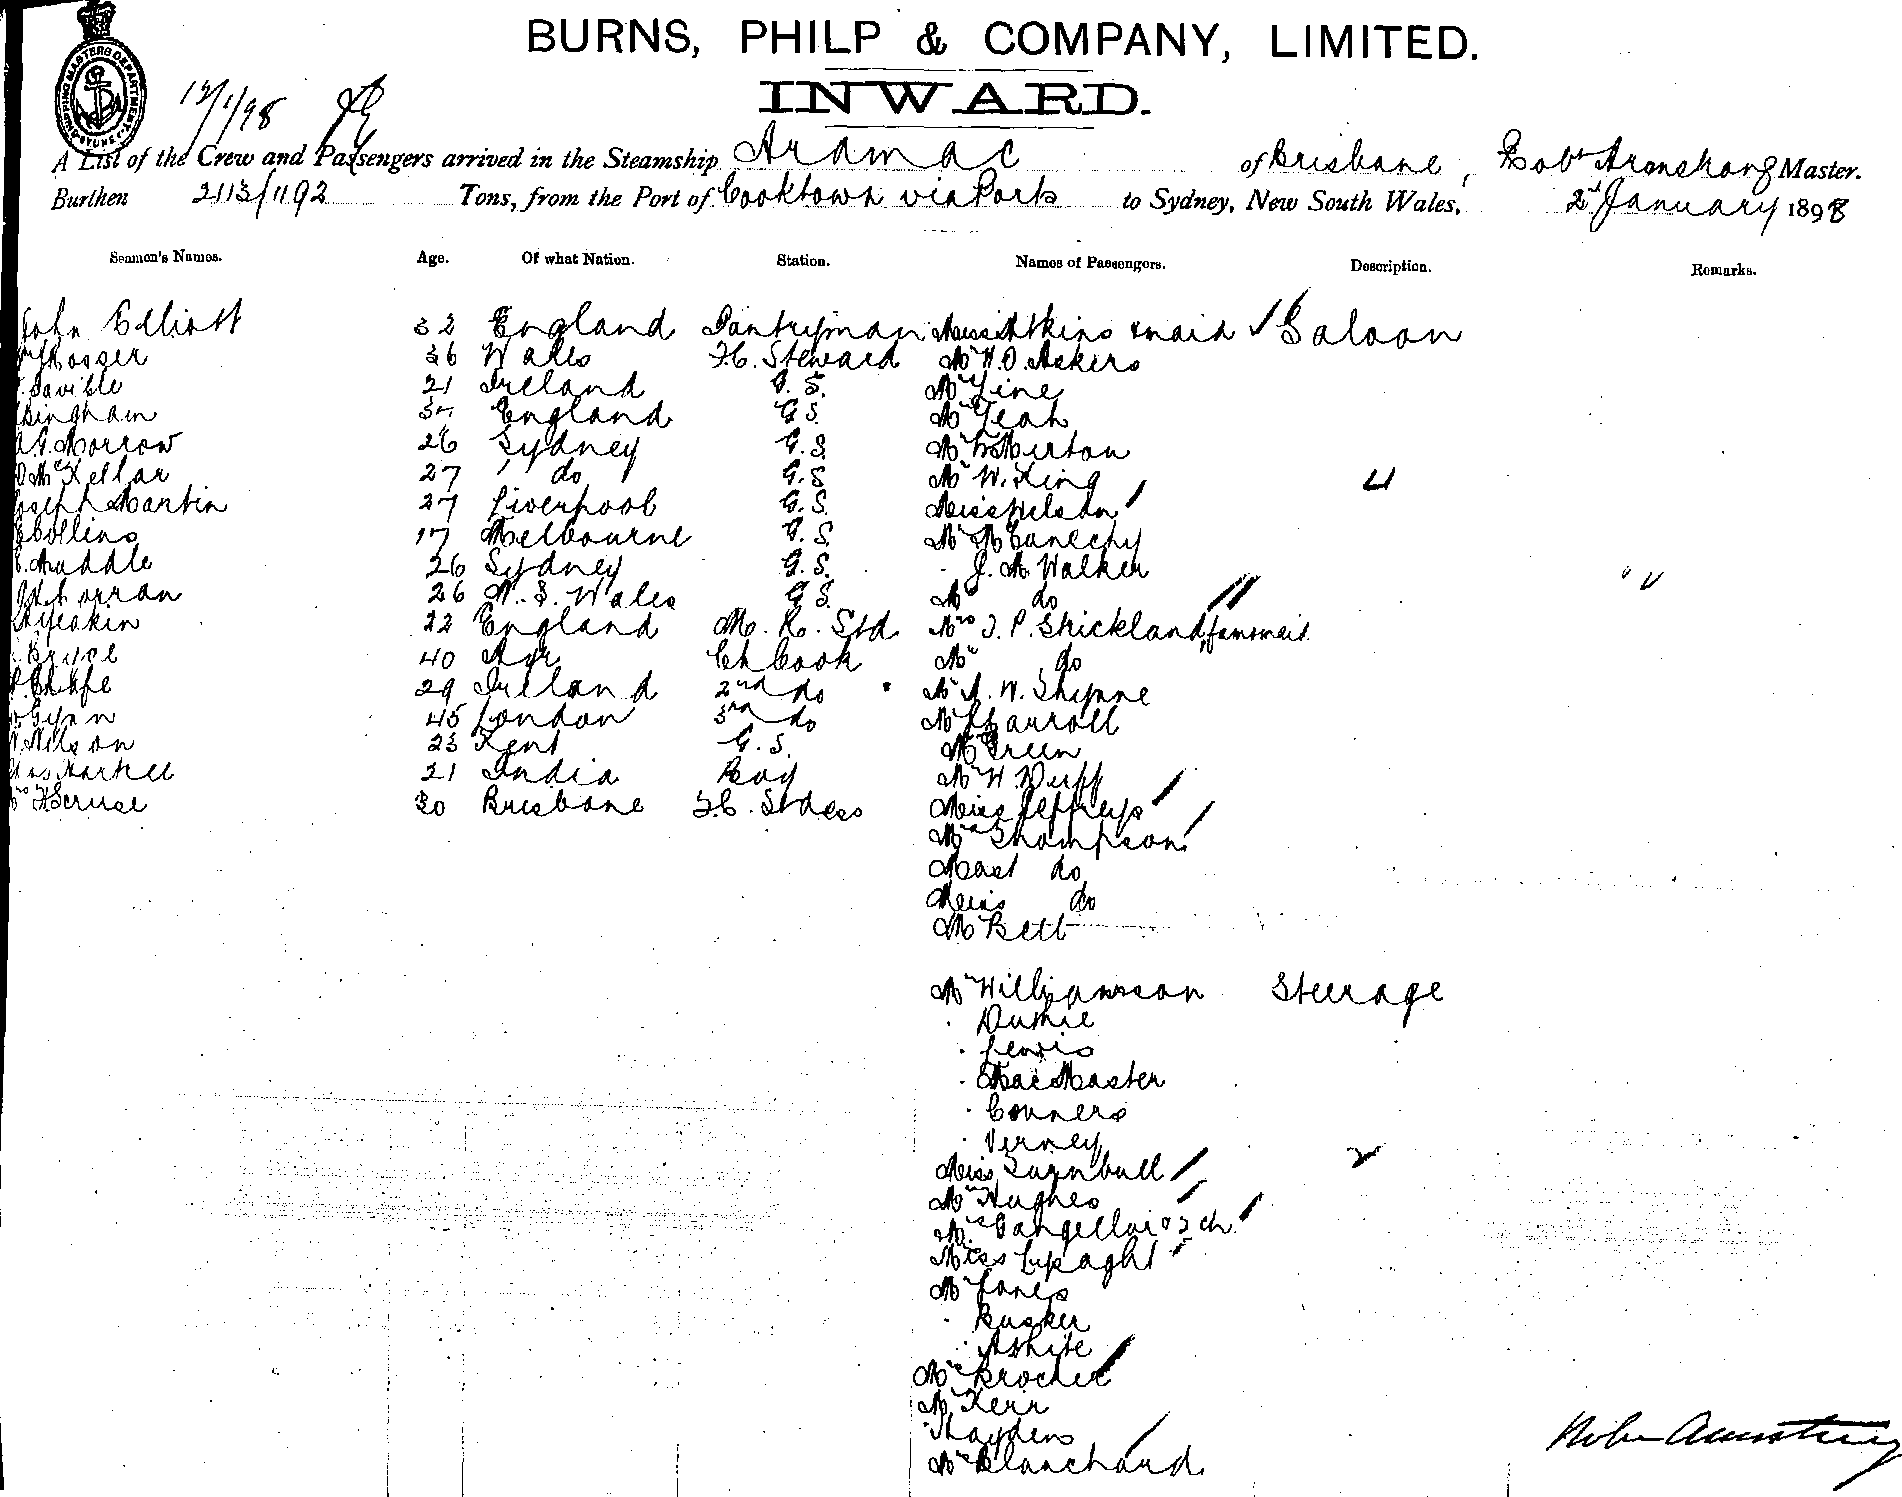 BURNS, PHILP & COMPANY, LIMITED.
INWARD.
SHIPPING MASTERS DEPARTMENT SYDNEY
12/1/98
A List of the Crew and Passengers arrived in the Steamship Aramac of Brisbane, Robt Armstrong Master.
Burthen 2113/1192 Tons, from the Port of Cooktown via Ports to Sydney, New South Wales, 2d January 1898
Seamen's Names. Age. Of what Nation. Station. Names of Passengers. Description. Remarks.
John Elliott 32 England Pantryman Miss Atkins & maid Saloon
Rosser 36 Wales F.C. Steward Mr W.O. Askers
Saville 21 Ireland G.S. Mr Line
Bingham England G.S. Mr
A.G. Morrow 26 Sydney G.S. Mr Merton
D McKellar 27 do G.S Mr W. King
Joseph Martin 27 Liverpool G.S. Miss Wilson
Collins 17 Melbourne G.S Mr
Muddle 26 Sydney G.S. J. A. Walker
26 N. S. Wales G S. Mrs do
22 England M. R. Std. Mrs J. P. Strickland
Bryce 40 Ayr Ch Cook Mr do
29 Ireland 2nd do Mr A. W. Thynne
Glynn 45 London 3rd do Mr Carroll
Nilson 23 Kent G.S. Mr Green
21 India Boy Mr W.
30 Brisbane F.C. Stdess Miss Jeffreys
Mrs Thompson
Mast do
Miss do
Mr Bett
Mr Williamson Steerage
Lewis
MacMaster
Conners
Verney
Miss Turnbull
Mrs Hughes
Mrs 2 ch
Miss
Mr Jones
Busker
White
Mrs
Mr Kerr
Haydens
Mrs Blanchard
Robt Armstrong